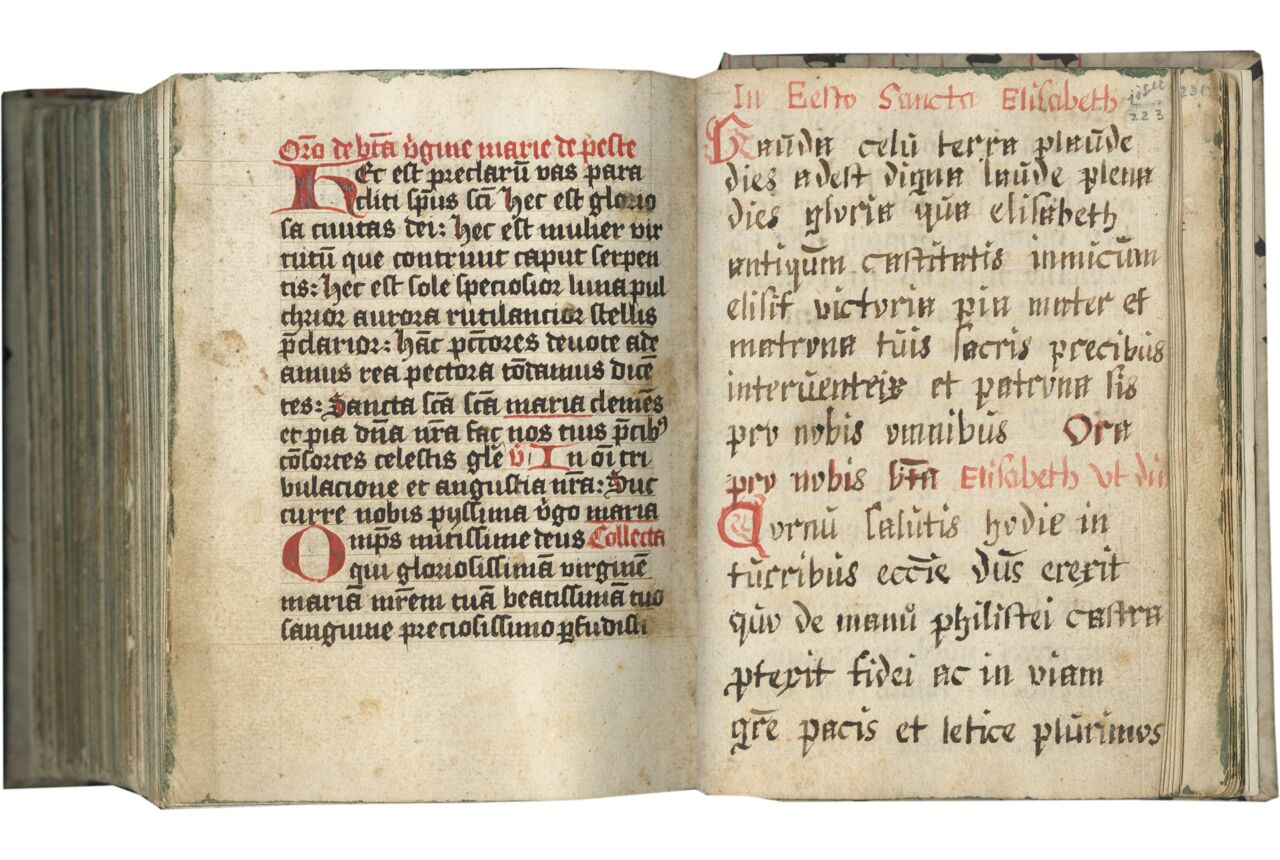 Oro de bta vgine marie de peste
HEc est preclarū vas para
cliti sp̄us sc̄i Hec est glorio
sa ciuitas dei: hec est mulier vir
tutū que contriuit caput serpen
tis: hec est sole speciosior luna pul
chrior aurora rutilancior stellis
p̄clarior: hāc pc̄tores deuote ade
amus rea pectora tōdamus dicē
tes: Sancta sc̄a sc̄a maria clemēs
et pia dn̄a nr̄a fac nos tuis p̄cib9
cōsortes celestis gl̄e v̄ In oī tri
bulacione et angustia nr̄a: Suc
curre nobis pyssima v̄go maria
Omp̄s mitissime deus Collecta
qui gloriosissimā virginē
mariā mr̄em tuā beatissimā tuo
sanguine preciosissimo ꝑfudisti
In Festo Sancta Elisabeth
223
231
Gaūda celū terra plaūde
dies adest digna laūde plena
dies gloria qūa elisabeth
antiqūm castitatis inimicūm
elisit victoria pia mater et
matrona tūis sacris precibūs
interūenteix et patrona sis
pro nobis omnibūs Ora
pro nobis bt̄a Elisabeth Vt dūi
Cornū salūtis hodie in
tūrribūs ecc̄ie dūs erexit
qūo de manū philistei castra
ꝓtexit fidei ac in viam
gr̄e pacis et letice plūrimos